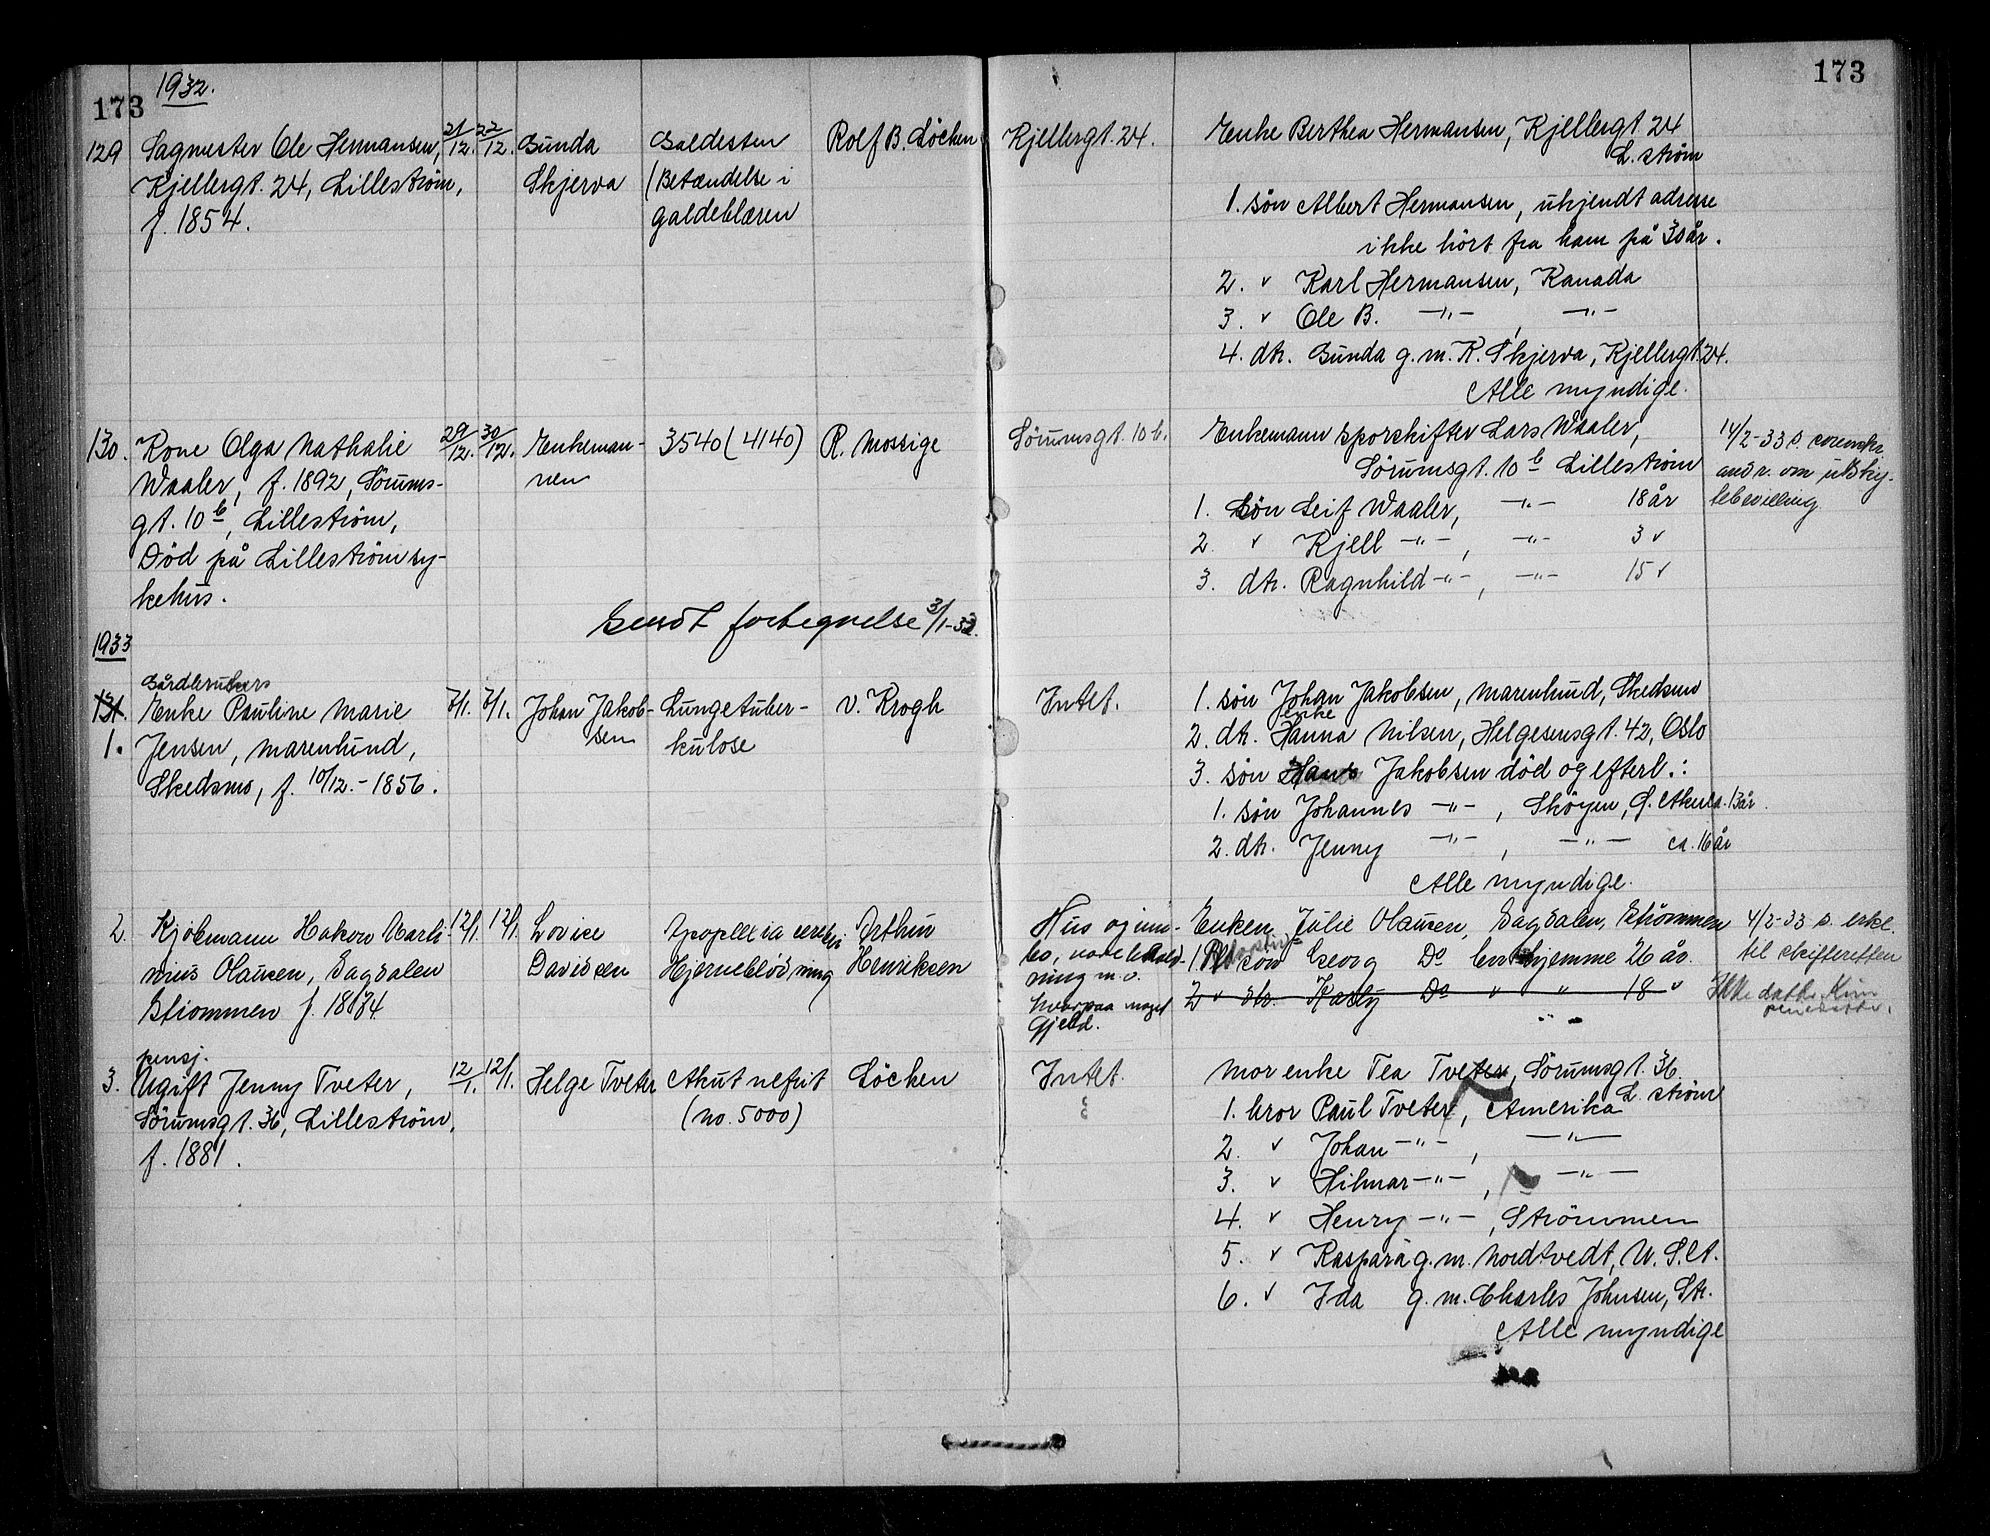 1932.
173
173
129
Sagmester Ole Hermansen,
Kjellergt. 24, Lilleström,
f. 1854.
21/12.
22/12.
Gunda
Skjerva
Galdesten
(Betændelse i
galdeblæren
Rolf B. Löchen
Kjellergt. 24.
Enke Berthea Hermansen, Kjellergt 24
L. ström
1. sön Albert Hermansen, ukjendt adresse
ikke hört fra ham på 30 år.
2. " Karl Hermansen, Kanada
3. " Ole B. -"- , -"-
4. dtr. Gunda g. m. K. Skjerva, Kjellergt. 24.
Alle myndige.
130.
Kone Olga Nathalie
Waaler, f. 1892, Sörums-
gt. 10 b, Lilleström,
Död på Lilleström sy-
kehus.
29/12.
30/12.
Enkeman-
nen
3540 (4140)
R. Mossige
Sörumsgt. 10 b.
Enkemann sporskifter Lars Waaler,
Sörumsgt. 10 b Lilleström
1. Sön Leif Waaler, -"- 18 år
2. " Kjell -"- , -"- 3 "
3. dtr. Ragnhild -"- , -"- 15 "
14/2-33 s. sorenskr.
om
Sendt fortegnelse 3/1-33.
1933
131.
1.
Gårdbrukers
Enke Pauline Marie
Jensen, Marenlund,
Skedsmo, f. 10/12.-1856.
7/1.
7/1.
Johan Jakob-
sen
Lungetuber-
kulose
v. Krogh
Intet.
1. sön Johan Jakobsen, Marenlund, Skedsmo
enke
2. dtr. Hanna Nilsen, Helgesensgt. 42, Oslo
3. sön Hans Jakobsen död og efterl.:
1. sön Johannes -"- , Sköyen, 13 år.
2. dtr. Jenny -"- , -"- ca. 16 år
Alle myndige.
2.
Kjölmann Hakon Marti-
nius Olausen, Sagdalen
Strömmen f. 1874
12/1.
12/1.
Lovise
Davidsen
Apoplexia cerebri
Hjerneblödning
Arthur
Henriksen
Hus og inn-
bo,
ning m. v.
hvorpaa noget
gjeld.
Enken Julie Olausen, Sagdalen, Strömmen
1 sön Georg Do hjemme 26 år.
2 " dtr. Do " " 18 "
4/2-33 s. erkl.
til skifteretten
Ikke
3.
pensj.
Ugift Jenny Tveter,
Sörumsgt. 36, Lilleström,
f. 1881.
12/1.
12/1.
Helge Tveter
Akut nefrit
(no. 5000)
Löchen
Intet.
Mor enke Tea Tveter, Sörumsgt. 36.
L. ström
1. bror Paul Tveter, Amerika
2. " Johan -"- , -"-
3. " Hilmar -"- , -"-
4. " Henry -"- , Strömmen
5. " Kaspara g. m. Nordtvedt, U. S. A.
6. " Ida g. m. Charles Johnsen, Str.
Alle myndige